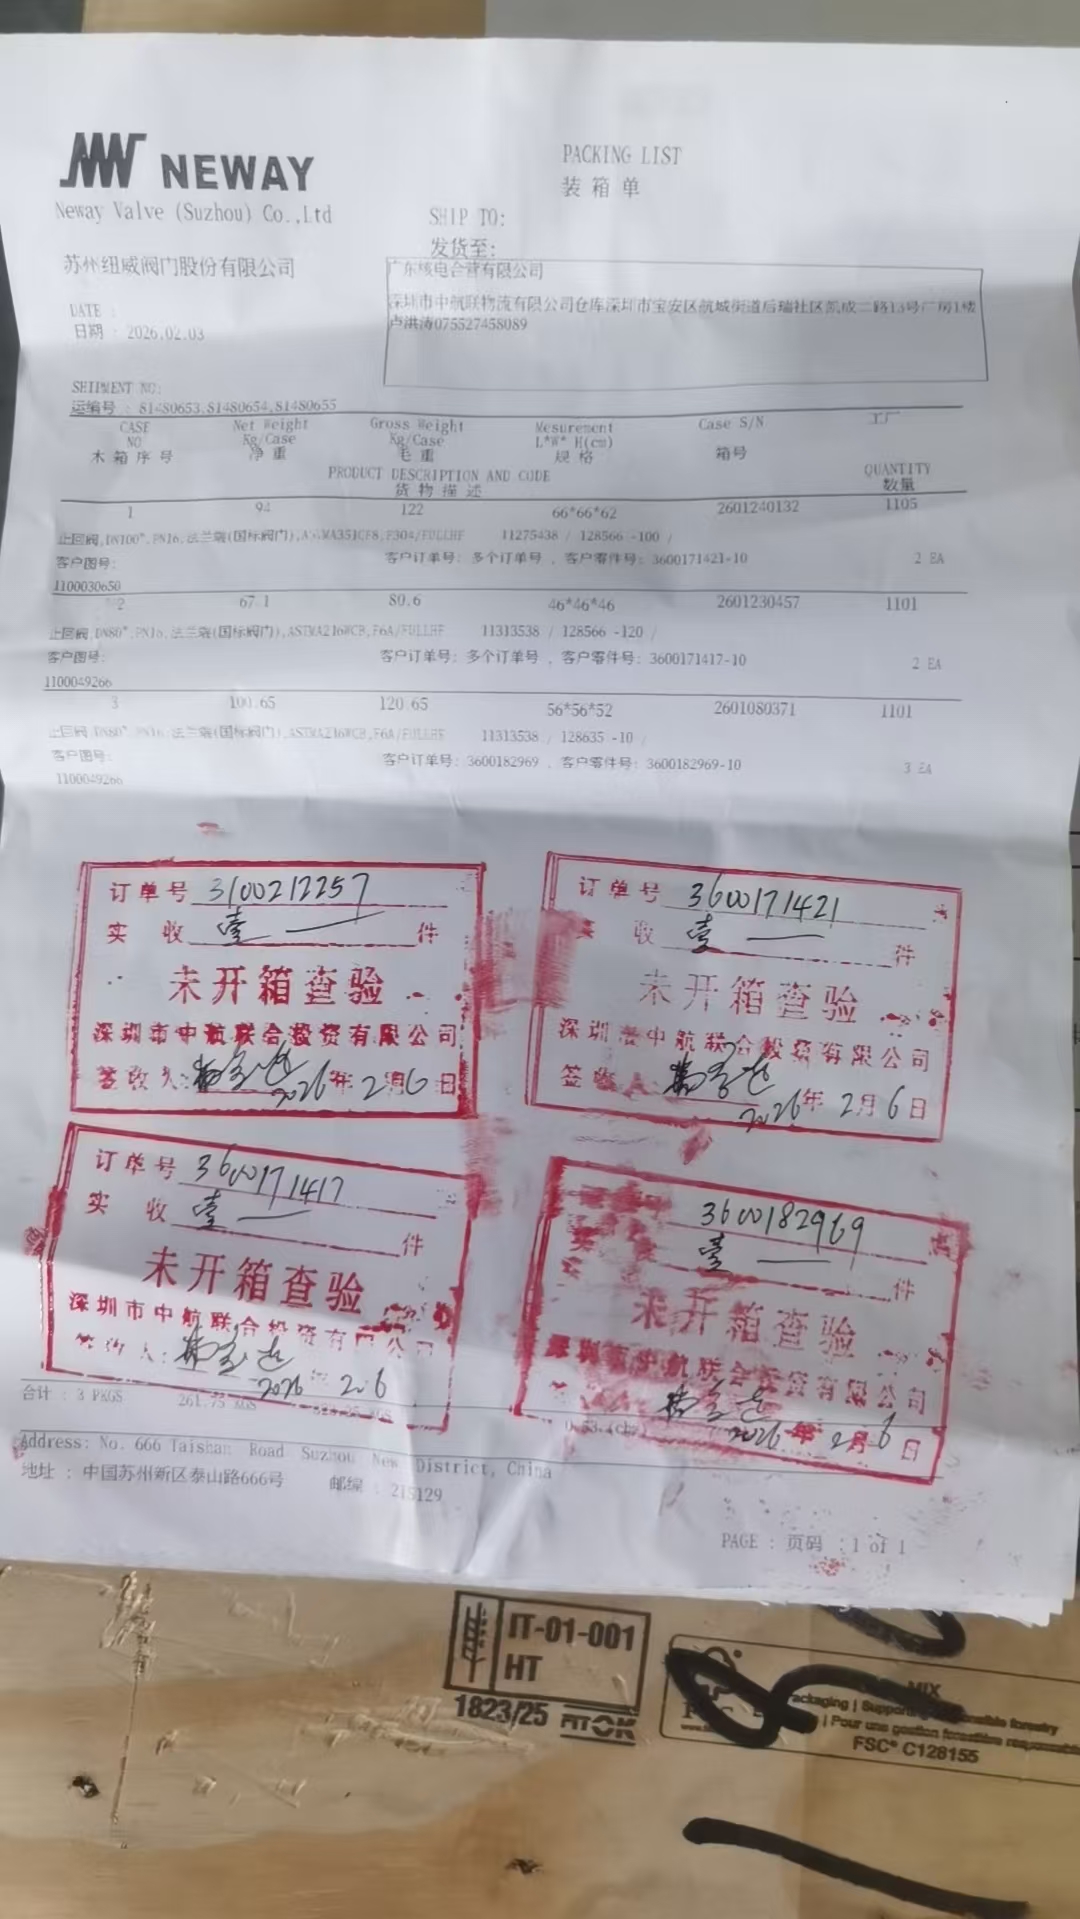 NEWAY
Neway Valve (Suzhou) Co.,Ltd
苏州纽威阀门股份有限公司
PACKING LIST
装箱单
SHIP TO:
发货至:
广东核电合营有限公司
深圳市中航联物流有限公司仓库深圳市宝安区航城街道后瑞社区凯成二路13号厂房1楼
卢洪涛075527458089
DATE :
日期 : 2026.02.03
SHIPMENT NO:
运编号 : 81480653,81480654,81480655
CASE NO 木箱序号
Net Weight Kg/Case 净重
Gross Weight Kg/Case 毛重
Mesurement L*W* H(cm) 规格
Case S/N 箱号
工厂
PRODUCT DESCRIPTION AND CODE
货物描述
QUANTITY
数量
1 94 122 66*66*62 2601240132 1105
止回阀,DN100*,PN16,法兰端(国标阀门),ASTMA351CF8,F304/FULLHF 11275438 / 128566 -100 /
客户图号: 客户订单号: 多个订单号 , 客户零件号: 3600171421-10 2 EA
1100030650
2 67.1 80.6 46*46*46 2601230457 1101
止回阀,DN80*,PN16,法兰端(国标阀门),ASTMA216WCB,F6A/FULLHF 11313538 / 128566 -120 /
客户图号: 客户订单号: 多个订单号 , 客户零件号: 3600171417-10 2 EA
1100049266
3 100.65 120.65 56*56*52 2601080371 1101
止回阀,DN80*,PN16,法兰端(国标阀门),ASTMA216WCB,F6A/FULLHF 11313538 / 128635 -10 /
客户图号: 客户订单号: 3600182969 , 客户零件号: 3600182969-10 3 EA
1100049266
订单号 3100212257
实收 壹 件
未开箱查验
深圳市中航联合投资有限公司
签收人:
2026年2月6日
订单号 3600171421
实收 壹 件
未开箱查验
深圳市中航联合投资有限公司
签收人:
2026年2月6日
订单号 3600171417
实收 壹 件
未开箱查验
深圳市中航联合投资有限公司
签收人:
2026 2.6
3600182969
壹 件
未开箱查验
深圳市中航联合投资有限公司
2026年2月6日
合计 : 3 PKGS 261.75 KGS
Address: No. 666 Taishan Road Suzhou New District, China
地址 : 中国苏州新区泰山路666号 邮编 : 215129
PAGE : 页码 :1 of 1
IT-01-001
HT
1823/25 FITOK
MIX
ackaging | Supporting responsible forestry
| Pour une gestion forestière responsable
FSC® C128155